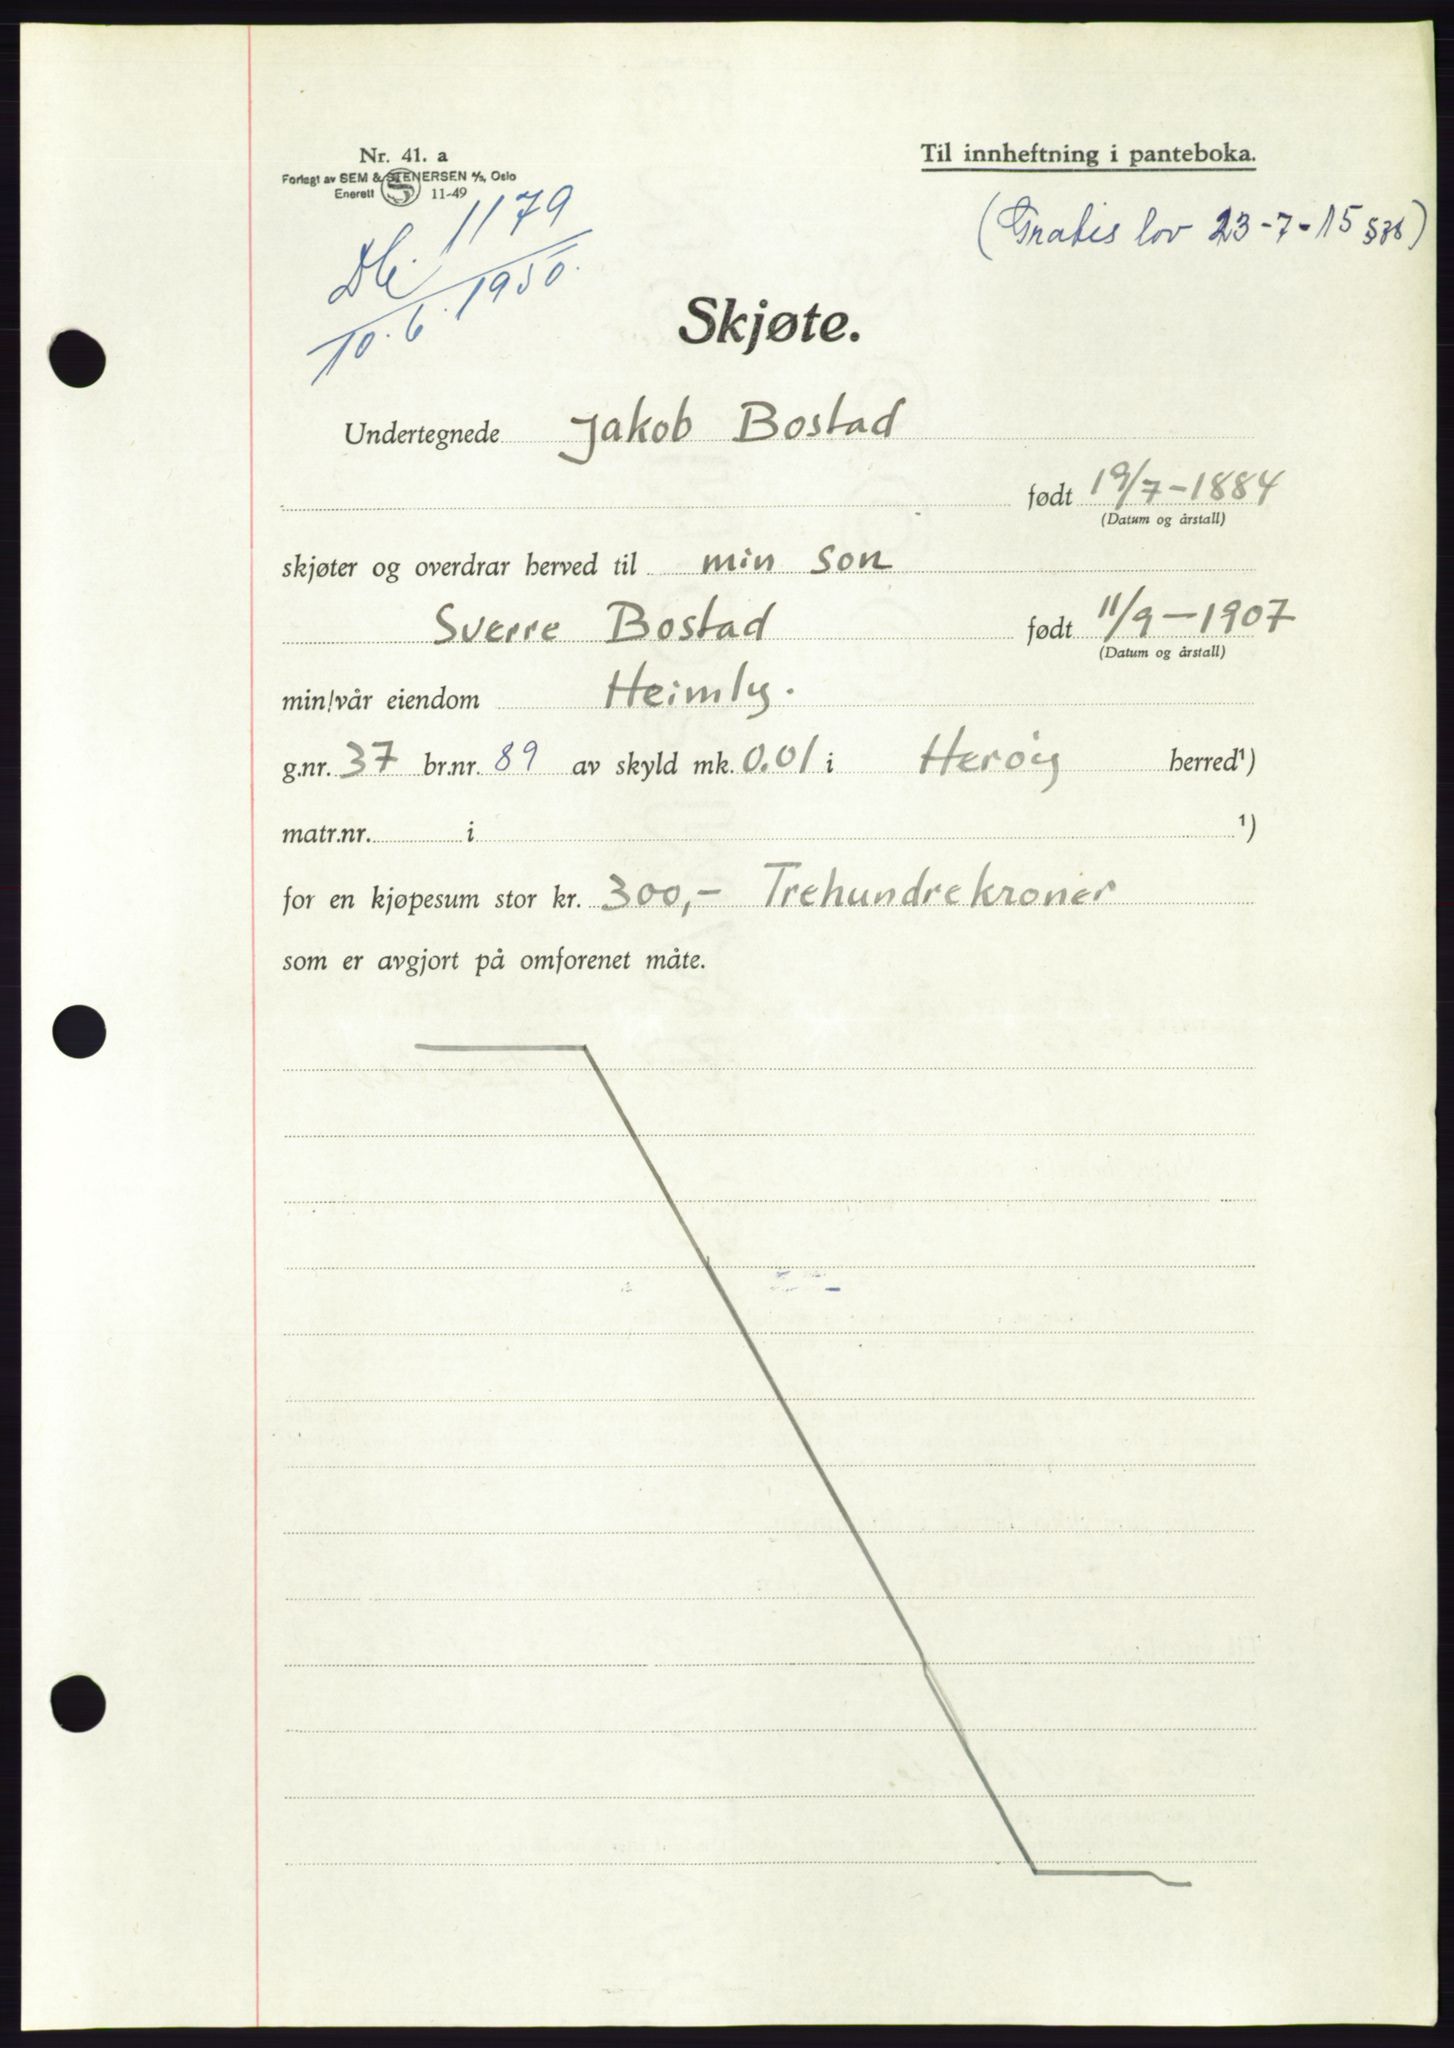 Nr. 41. a
Til innheftning i panteboka.
Forlagt av SEM & STENERSEN A/S, Oslo
Enerett 11-49
(Gratis lov 23-7-15 §38)
1179
10.6.1950.
Skjøte.
Undertegnede Jakob Bostad
født 19/7-1884
(Datum og årstall)
skjøter og overdrar herved til min son
Sverre Bostad født 11/9-1907
(Datum og årstall)
min/vår eiendom Heimly.
g.nr. 37 br.nr. 89 av skyld mk. 0.01 i Herøy herred¹)
matr.nr. i ¹)
for en kjøpesum stor kr. 300,- Trehundrekroner
som er avgjort på omforenet måte.